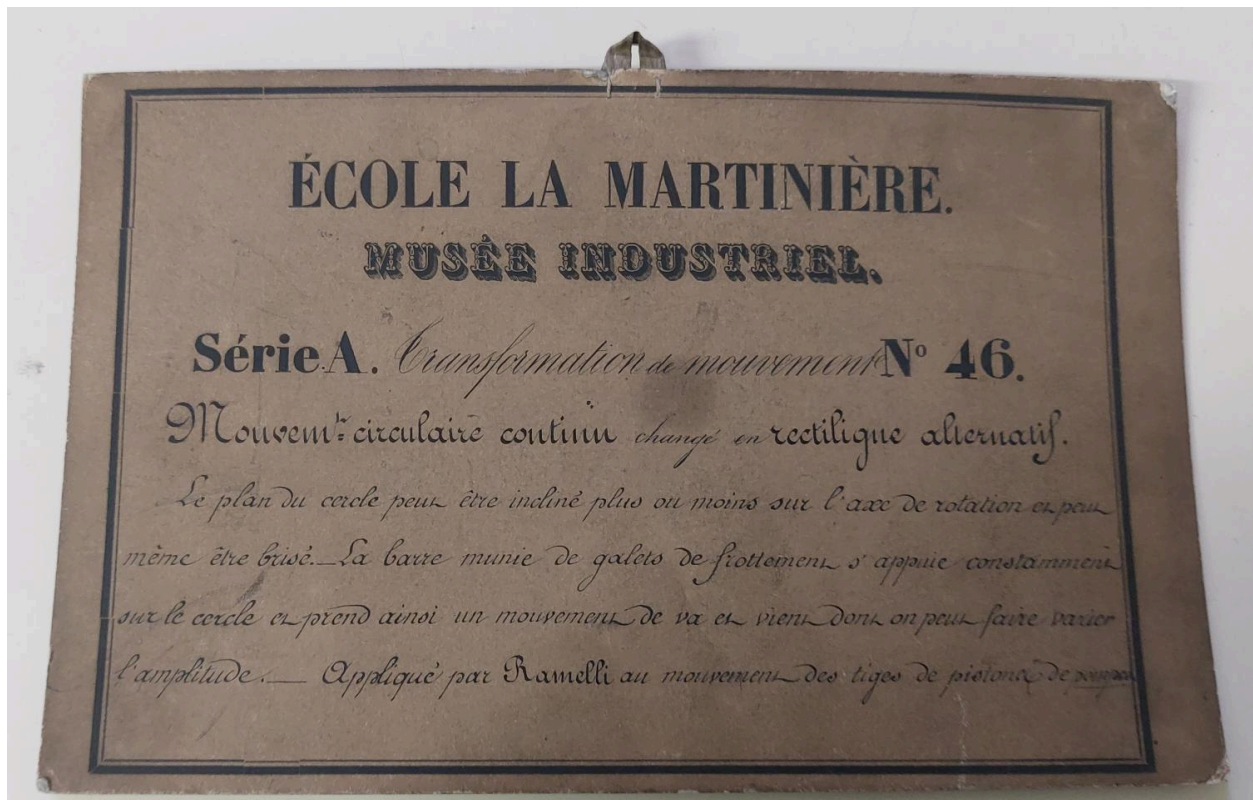 ÉCOLE LA MARTINIÈRE.
MUSÉE INDUSTRIEL.
Série A. Transformation de mouvement No 46.
Mouvemt circulaire continu changé en rectiligne alternatif.
Le plan du cercle peut être incliné plus ou moins sur l'axe de rotation et peut
même être brisé. — La barre munie de galets de frottement s'appuie constamment
sur le cercle et prend ainsi un mouvement de va et vient dont on peut faire varier
l'amplitude. — Appliqué par Ramelli au mouvement des tiges de pistons de pompes